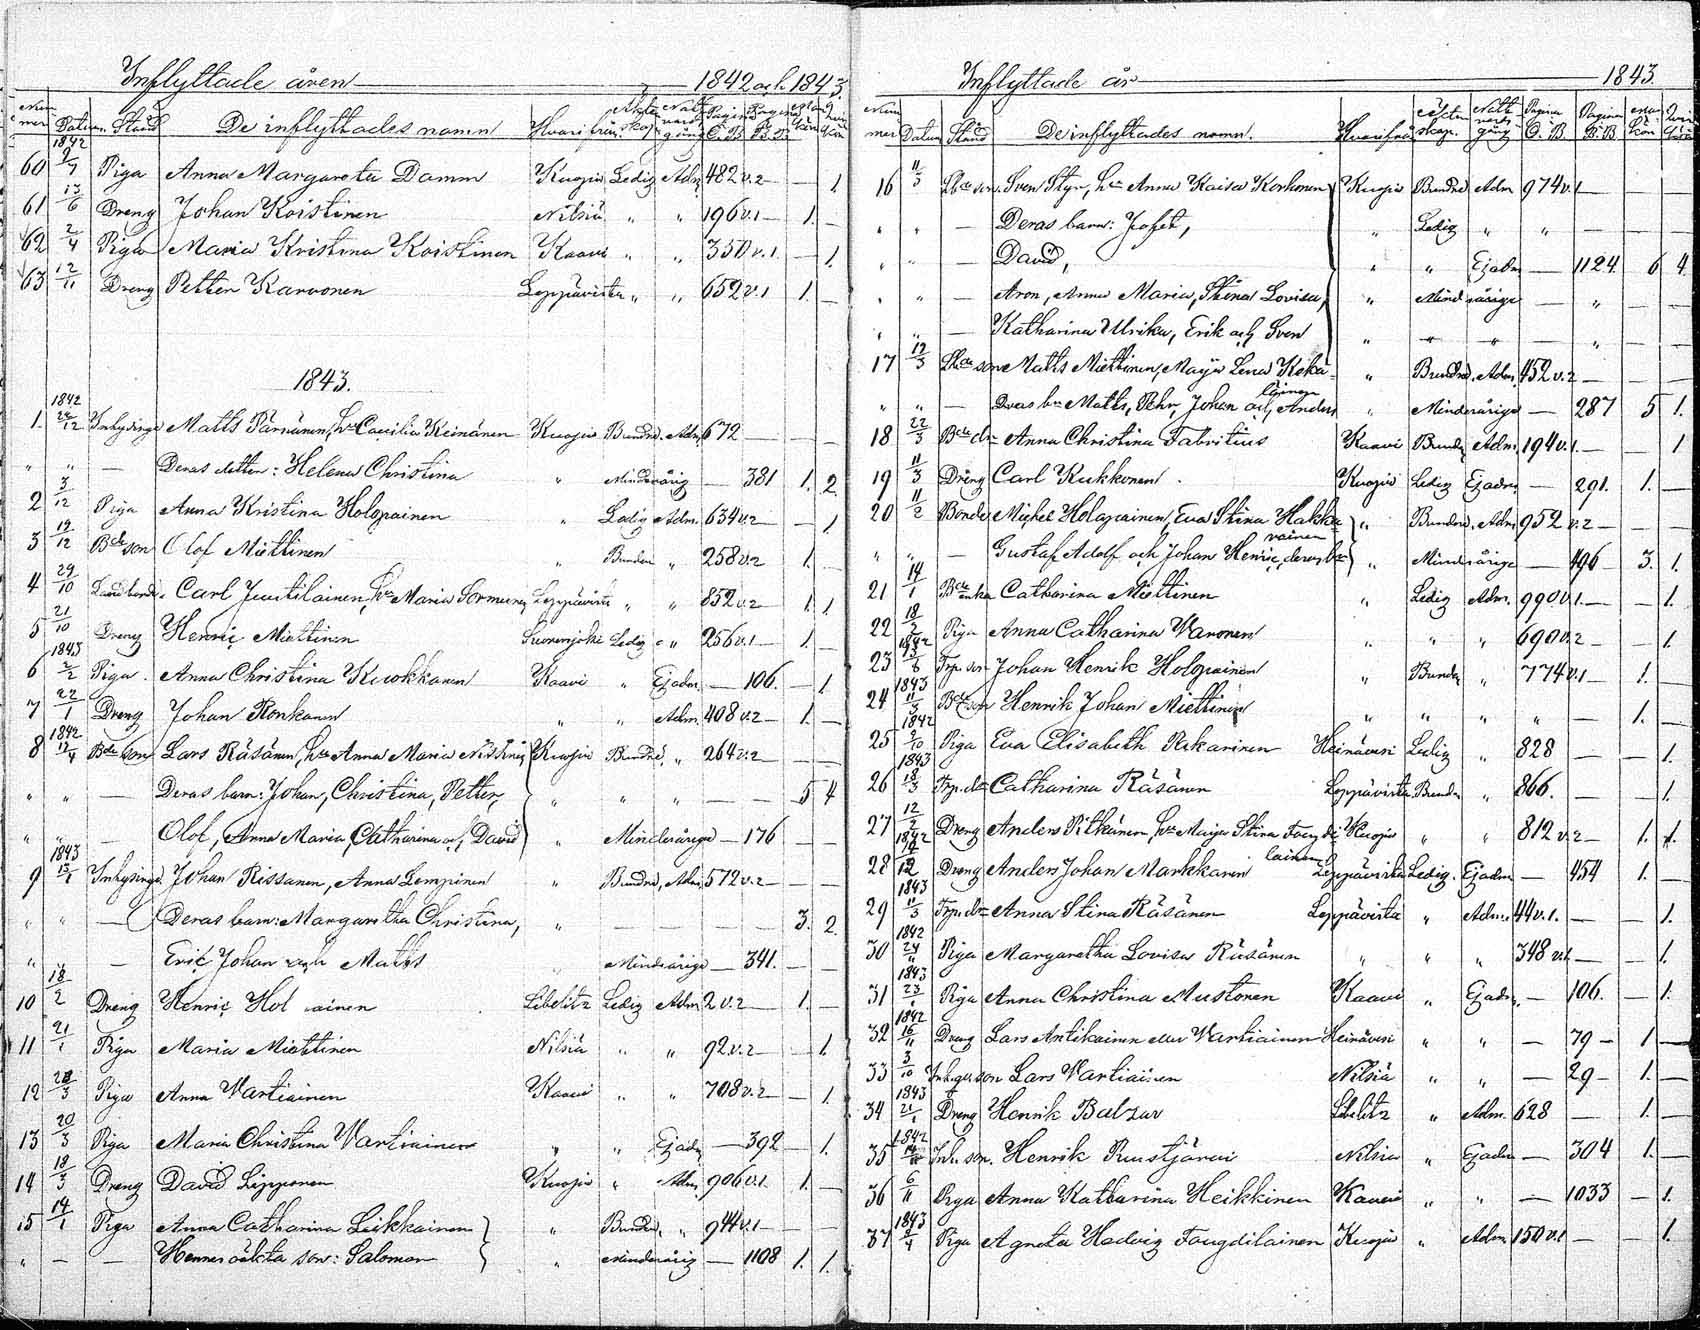 Inflyttade åren 1842 och 1843.
Nummer Datum Stånd De inflyttades namn Hvarifrån Äkten skap Natt vards gång Pagina C. B. Pagina B. B. Mankön Qvinkön
1842
60 2/7 Piga Anna Margareta Damm Kuopio Ledig Adm. 482 v. 2 — — 1.
61 13/6 Dreng Johan Koistinen Nilsiä " " 196 v. 1 — 1. —
62 2/4 Piga Maria Kristina Koistinen Kaavi " " 350 v. 1. — — 1.
63 12/11 Dreng Petter Karvonen Leppävirta " " 652 v. 1 1. —
1843.
1842
1 26/12 Inhysinge Matts Pärnänen, h:u Caecilia Keinänen Kuopio Bundne, Adm. 672 — — —
" " — Deras dotter: Helena Christina " Minderårig — 381 1. 2.
2 3/12 Piga Anna Kristina Holopainen " Ledig Adm. 634 v. 2 — — 1
3 19/12 Bde son Olof Miettinen " Bunden " 258 v. 2 1. —
4 29/10 Landbonde Carl Juutilainen, h:u Maria Sormunen Leppävirta " " 852 v. 2 — 1. 1
5 21/10 Dreng Henric Miettinen Suonenjoki Ledig " 256 v. 1 — 1. —
1843
6 2/2 Piga Anna Christina Kuokkanen Kaavi " Ej adm. — 106. — 1
7 22/1 Dreng Johan Ronkanen " " Adm. 408 v. 2 — 1. —
1842
8 12/4 Bde son Lars Räsänen, h:u Anna Maria Nissinen Kuopio Bundne, " 264 v. 2 — — —
" " — Deras barn: Johan, Christina, Petter, " " " — — 5 4
" " — Olof, Anna Maria, Catharina och David " Minderårige — 176 — —
1843
9 13/1 Inhysinge Johan Rissanen, Anna Lempinen " Bundne, Adm. 572 v. 2 — — —
" " — Deras barn: Margaretha Christina, " — — — — 3. 2.
" — Eric Johan och Matts " Minderårige — 341. — —
10 18/2 Dreng Henric Hol ainen Libelitz Ledig Adm. 2 v. 2 — 1. —
11 21/1 Piga Maria Miettinen Nilsiä " " 92 v. 2 — — 1.
12 28/3 Piga Anna Vartiainen Kaavi " " 708 v. 2 — — 1.
13 20/3 Piga Maria Christina Vartiainen " " Ej adm. — 392 — 1.
14 18/3 Dreng David Lipponen Kuopio " Adm. 906 v. 1. 1. —
15 14/1 Piga Anna Catharina Leikkainen " Bunden, " 944 v. 1 — — —
" — — Hennes oäkta son: Salomon " Minderårig — 1108 1. 1.
Inflyttade år 1843.
Nummer Datum Stånd De inflyttades namn. Hvarifrån Äkten skap. Natt vards gång Pagina C. B. Pagina B. B. Mankön Qvinkön
16 11/3 Bde son. Sven Styr, h:u Anna Kaisa Korhonen Kuopio Bundne Adm. 974 v. 1 — — —
" " — Deras barn: Josef, " Ledig " " — — —
" " — David, " " Ej adm. — 1124. 6 4.
" " — Aron, Anna Maria, Stina Lovisa, " Minderårige — " — —
" " — Katharina Ulrika, Erik och Sven " " " — " — —
17 12/3 Bde son Matts Miettinen, Maija Lena Kekäläinen " Bundne, Adm. 452 v. 2 — — —
" " — Deras bn Matts, Pehr, Johan och Anders " Minderårige — 287 5 1.
18 22/3 Bde dr Anna Christina Fabritius Kaavi Bunden Adm. 194 v. 1. — — 1
19 11/3 Dreng Carl Kukkonen. Kuopio Ledig Ej adm. — 291. 1. —
20 11/2 Bonde Michel Holopainen, Eva Stina Hakkarainen " Bundne, Adm. 952 v. 2 — — —
" " — Gustaf Adolf och Johan Henric, deras bn " Minderårige — 496 3. 1.
21 14/1 Bde enka Catharina Miettinen " Ledig Adm. 990 v. 1. — — 1.
22 18/2 Piga Anna Catharina Varonen " " " 690 v. 2 — — 1.
1842
23 13/6 Trp. son Johan Henrik Holopainen " Bunden " 774 v. 1 — 1. —
1843
24 11/3 Bde son Henrik Johan Miettinen " " " " — 1. —
1842
25 2/10 Piga Eva Elisabeth Pekarinen Heinävesi Ledig " 828 — — 1.
1843
26 18/3 Trp. dr Catharina Räsänen Leppävirta Bunden " 866. — — 1.
27 12/2 Dreng Anders Pitkänen, h:u Maija Stina Fougdilainen Kuopio " " 812 v. 2 — 1. 1.
1842
28 12 Dreng Anders Johan Markkanen Leppävirta Ledig. Ej adm. — 454 1. —
1843
29 11/3 Trp. dr Anna Stina Räsänen Leppävirta " Adm. 44 v. 1. — — 1.
1842
30 24/11 Piga Margaretha Lovisa Räsänen " " " 348 v. 1 — — 1.
1843
31 23/1 Piga Anna Christina Mustonen Kaavi " Ej adm. — 106. — 1.
1842
32 16/11 Dreng Lars Antikainen eller Vartiainen Heinävesi " " — 79 — 1. —
33 3/10 Inhyses son Lars Vartiainen Nilsiä " " — 29 — 1. —
1843
34 21/1 Dreng Henrik Balzar Libelitz " Adm. 628 — 1. —
1842
35 Inh. son. Henrik Ruustjärvi Nilsiä " Ej adm. — 304 1. —
36 6/11 Piga Anna Katharina Heikkinen Kaavi " " — 1033 — 1.
1843
37 2/4 Piga Agneta Hedvig Fougdilainen Kuopio " Adm. 150 v. 1 — — 1.